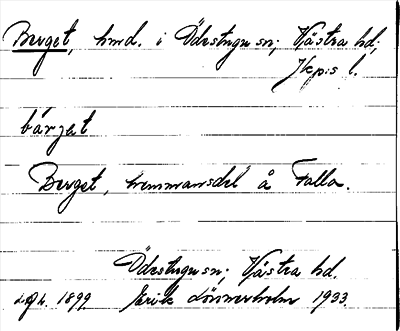 Berget, hmd. i Ödestugu sn; Västra hd;
Jkp:s l.
bárjet
Berget, hemmansdel å Falla.
Ödestugu sn; Västra hd.
1899 Erik Lönnerholm 1933.